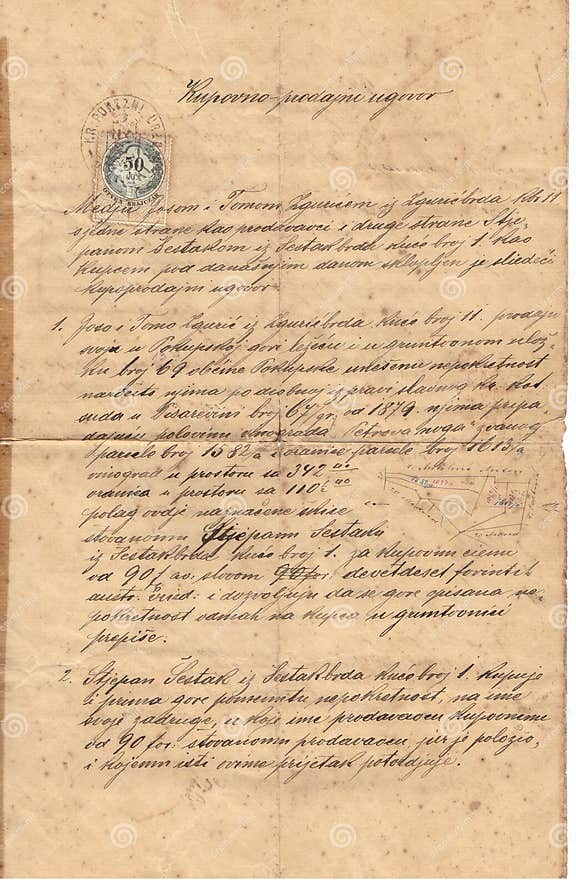 Kupovno-prodajni ugovor
KR. POREZNI URED
50
Medju Josom i Tomom Zgurićem iz Zgurićbrda kbr 11
s jedne strane kao prodavaoci i druge strane Stje-
panom Šestakom iz Šestakbrda kuće broj 1 kao
kupcem pod današnjim danom sklopljen je sliedeći
kupoprodajni ugovor
1. Joso i Tomo Zgurić iz Zgurićbrda kuće broj 11. prodaju
svoje u Pokupskoj gori ležeće i u gruntovnom ulož-
ku broj 69 obćine Pokupske unešene nepokretnost
naročito njima po diobnoj izpravi slavnog kr. kot
suda u Pisarovini broj 677/gr. od 1879. njima pripa
dajuću polovinu vinograda "Petreva noga" zvanog
parcele broj 1582/a i oranice parcele broj 1613/a
vinograd u prostoru sa 342
oranica u prostoru sa 110
polag ovdje naznačene skice
štovanomu Stjepanu Šestaku
iz Šestakbrda kuće broj 1. za kupovnu cienu
od 90 f av. slovom 90 for. devetdeset forintih
austr. vried: i dozvoljuju da se gore opisana ne-
pokretnost odmah na kupca u gruntovnici
prepiše.
2. Stjepan Šestak iz Šestakbrda kuće broj 1. kupuje
i prima gore pomenutu nepokretnost, na ime
svoje zadruge, u koje ime prodavaocu kupovninu
od 90 for. štovanomu prodavaocu jur je položio,
i kojemu isti ovime primitak potvrdjuje.